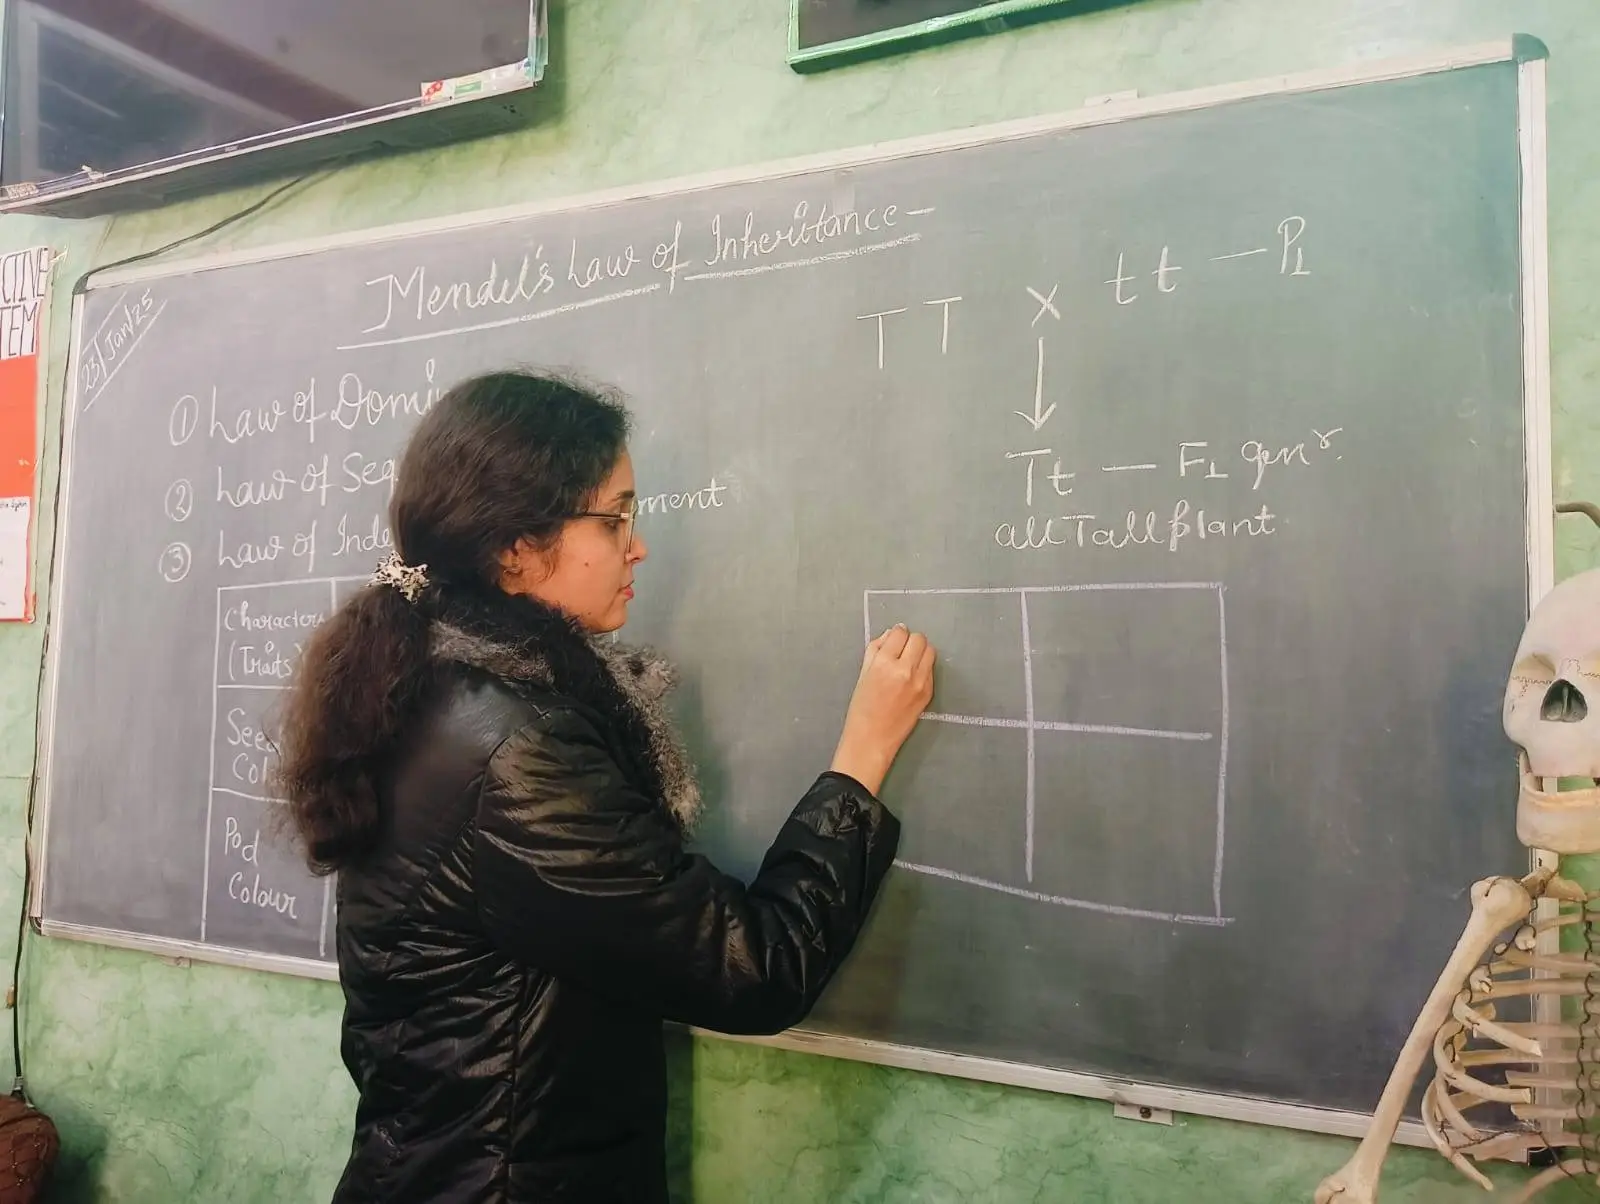 CTIVE
TEM
23/Jan/25
Mendel's Law of Inheritance-
① Law of Domi
② Law of Seg
③ Law of Inde ment
Characters
(Traits)
See
Col
Pod
Colour
T T × t t — P1
Tt — F1 genr.
all Tall plant